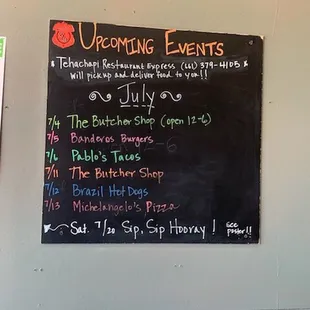 Upcoming Events
* Tehachapi Restaurant Express (661) 379-4105 *
will pick up and deliver food to you!!
July
7/4 The Butcher Shop (open 12-6)
7/5 Banderos Burgers
7/6 Pablo's Tacos
7/11 The Butcher Shop
7/12 Brazil Hot Dogs
7/13 Michelangelo's Pizza
Sat. 7/20 Sip, Sip Hooray! See
poster!!